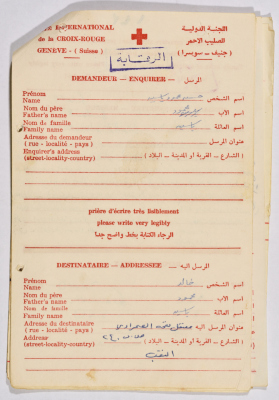 TÉ INTERNATIONAL
de la CROIX-ROUGE
GENEVE - (Suisse)
اللجنة الدولية
للصليب الاحمر
( جنيف – سويسرا )
DEMANDEUR — ENQUIRER — المرسل
Prénom
Name
اسم الشخص
Nom du père
Father's name
اسم الاب
Nom de famille
Family name
اسم العائلة
Adresse du demandeur
(rue - localité - pays)
عنوان المرسل
Enquirer's address
(street-locality-country)
( الشارع – القرية أو المدينة – البلاد )
prière d'écrire très lisiblement
please write very legibly
الرجاء الكتابة بخط واضح جدا
DESTINATAIRE — ADDRESSEE — المرسل اليه
Prénom
Name
اسم الشخص خالد
Nom du père
Father's name
اسم الاب محمود
Nom de famille
Family name
اسم العائلة
Adresse du destinataire
(rue - localité - pays)
عنوان المرسل اليه
Address
(street-locality-country)
( الشارع – القرية أو المدينة – البلاد )
النقب